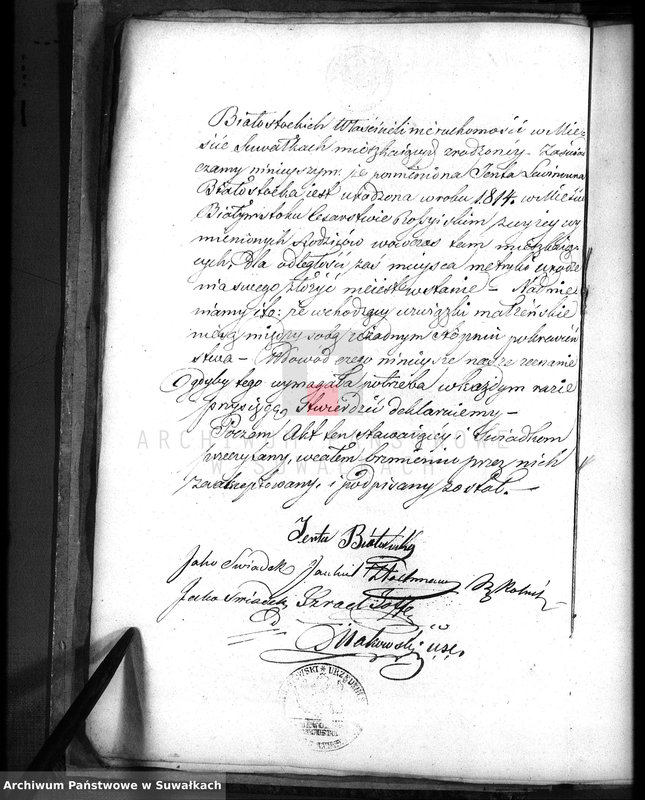 Białostockich Właścicieli nieruchomości w Mieście
Suwałkach mieszkających zrodzoney. Zaświad
czamy ninieyszym, że pomieniona Jenta
Białostocka iest urodzona w roku 1814. w Mieście
Białymstoku Cesarstwie Rossyiskim z wyżey wy
mienionych Rodziców wówczas tam mieszkaią
cych, Dla odległości zaś mieysca metryki urodze
nia swego złożyć nie iest w stanie – Nadmie
niamy i to: że wchodzący w związki małżeńskie
nie są między sobą w żadnym stopniu pokrewień
stwa – Na dowód czego ninieysze nasze zeznanie
gdyby tego wymagała potrzeba w każdym razie
przysięgą stwierdzić deklaruiemy –
Poczem Akt ten stawaiącey i Świadkom
przeczytany, w całem brzmieniu przez nich
zaakceptowany, i podpisany został. –
Jenta Białostocka
Jako Świadek Jankiel Szkolnik
Jako Świadek Izrael Joffe
Makowski
URZĄD
ARCHIWUM PAŃSTWOWE
W SUWAŁKACH
Archiwum Państwowe w Suwałkach